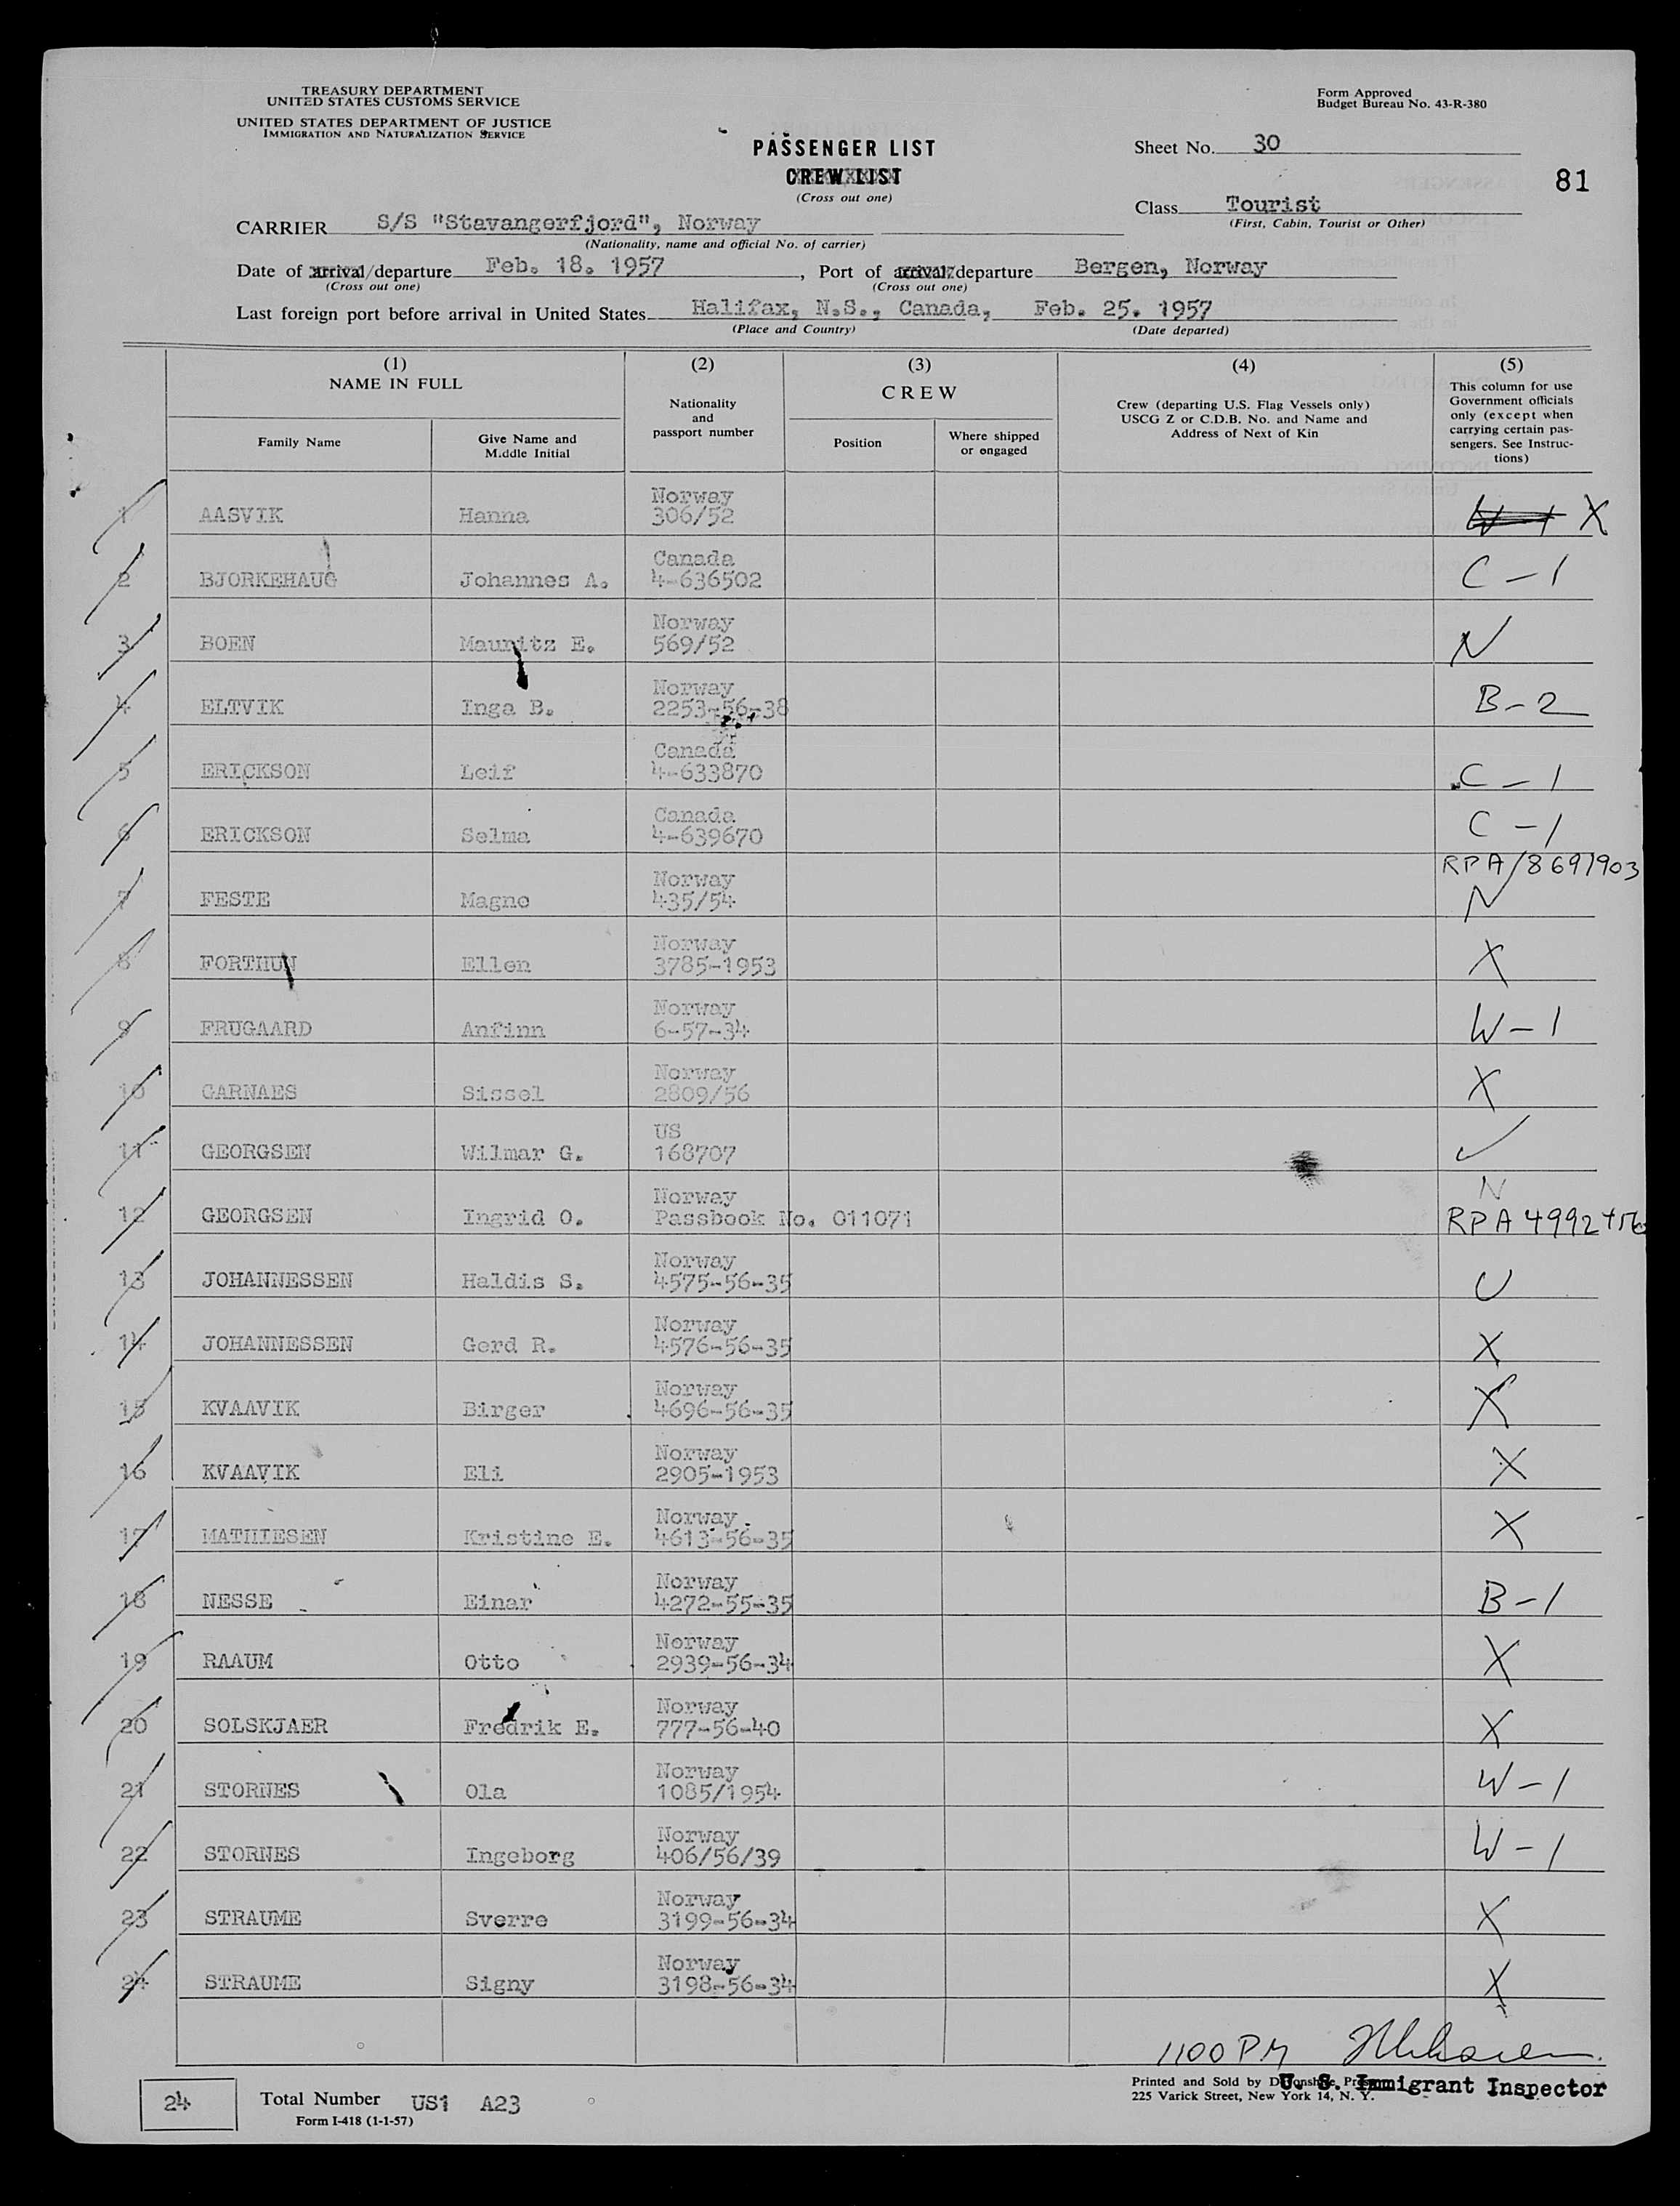 TREASURY DEPARTMENT
UNITED STATES CUSTOMS SERVICE
UNITED STATES DEPARTMENT OF JUSTICE
IMMIGRATION AND NATURALIZATION SERVICE
Form Approved
Budget Bureau No. 43-R-380
PASSENGER LIST
CREW LIST
(Cross out one)
Sheet No. 30
81
Class Tourist
(First, Cabin, Tourist or Other)
CARRIER S/S "Stavangerfjord", Norway
(Nationality, name and official No. of carrier)
Date of arrival/departure Feb. 18. 1957, Port of arrival/departure Bergen, Norway
(Cross out one) (Cross out one)
Last foreign port before arrival in United States Halifax, N.S., Canada, Feb. 25. 1957
(Place and Country) (Date departed)
(1) (2) (3) (4) (5)
NAME IN FULL
Family Name
Give Name and
M.ddle Initial
Nationality
and
passport number
CREW
Position
Where shipped
or engaged
Crew (departing U.S. Flag Vessels only)
USCG Z or C.D.B. No. and Name and
Address of Next of Kin
This column for use
Government officials
only (except when
carrying certain pas-
sengers. See Instruc-
tions)
Norway
1 AASVIK Hanna 306/52 W-1 X
Canada
2 BJORKEHAUG Johannes A. 4-636502 C-1
Norway
3 BOEN Mauritz E. 569/52 N
Norway
4 ELTVIK Inga B. 2253-56-38 B-2
Canada
5 ERICKSON Leif 4-633870 C-1
Canada
6 ERICKSON Selma 4-639670 C-1
RPA/8691903
Norway
7 FESTE Magne 435/54 N
Norway
8 FORTHUN Ellen 3785-1953 X
Norway
9 FRUGAARD Anfinn 6-57-34 W-1
Norway
10 GARNAES Sissel 2809/56 X
US
11 GEORGSEN Wilmar G. 168707 ✓
Norway N
12 GEORGSEN Ingrid O. Passbook No. 011071 RPA
Norway
13 JOHANNESSEN Haldis S. 4575-56-35 U
Norway
14 JOHANNESSEN Gerd R. 4576-56-35 X
Norway
15 KVAAVIK Birger 4696-56-35 X
Norway
16 KVAAVIK Eli 2905-1953 X
Norway
17 MATHIESEN Kristine E. 4613-56-35 X
Norway
18 NESSE Einar 4272-55-35 B-1
Norway
19 RAAUM Otto 2939-56-34 X
Norway
20 SOLSKJAER Fredrik E. 777-56-40 X
Norway
21 STORNES Ola 1085/1954 W-1
Norway
22 STORNES Ingeborg 406/56/39 W-1
Norway
23 STRAUME Sverre 3199-56-34 X
Norway
24 STRAUME Signy 3198-56-34 X
1100 PM
U. S. Immigrant Inspector
Printed and Sold by Devonshire Press
225 Varick Street, New York 14, N. Y.
24 Total Number US1 A23
Form I-418 (1-1-57)